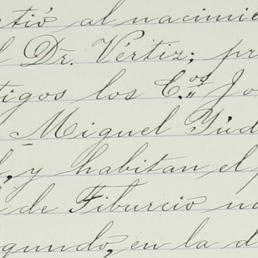 tió al nacimie
l Dr. Vértiz; pr
tigos los C.os Jo
Miguel
y habitan el
de Tiburcio n
gundo, en la d